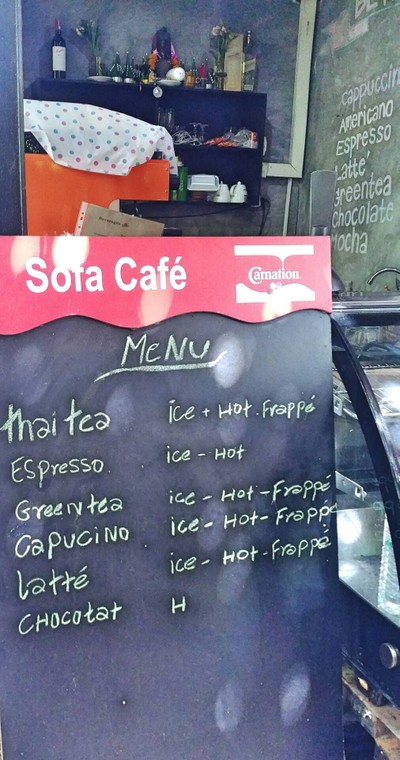 cappuccin
Americano
Espresso
Latte'
Greentea
Chocolate
Mocha
Sofa Café
Carnation
MENU
thai tea ice + Hot . Frappé
ESPresso . ice - Hot
Greentea ice - Hot - Frappé
CaPUCiNO . ice - Hot - Frappé
Latté ice - Hot - Frappé
CHOCotat H